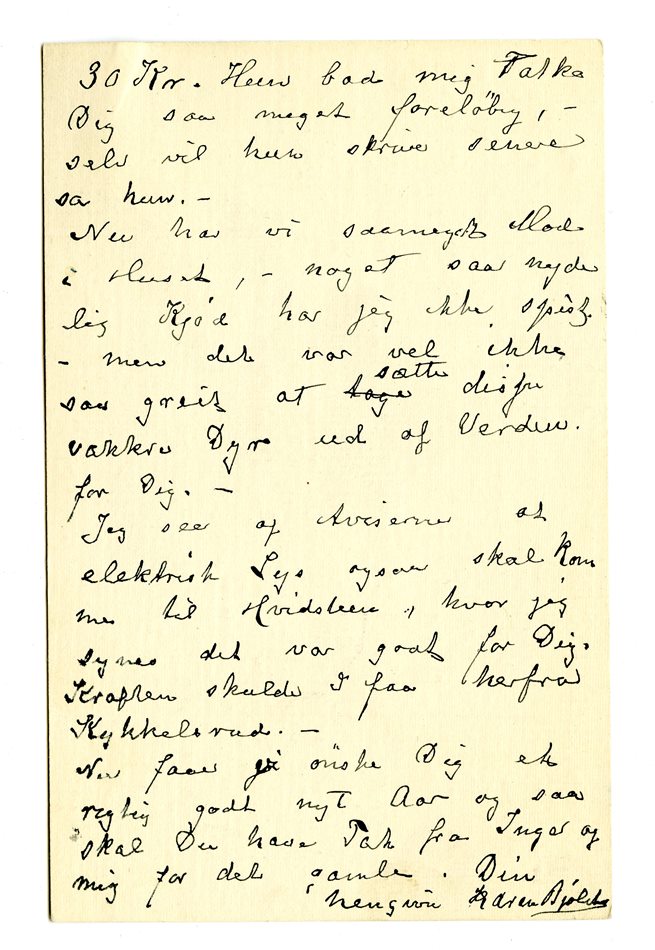 30 Kr. Hun bad mig Takke
Dig saa meget foreløbig, –
selv vil hun skrive senere
sa hun. –
Nu har vi saameget Mad
i Huset, – noget saa nyde
lig Kjød har jeg ikke spist.
– men det var vel ikke
sætte
saa greit at tage disse
vakkre Dyr ud af Verden.
for Dig. –
Jeg seer af Aviserne at
elektrisk Lys ogsaa skal kom
me til Hvidsteen, hvor jeg
synes det var godt for Dig.
Kraften skulde I faa herfra
Kykkelsrud. –
Nu faar vi önske Dig et
rigtig godt nyt Aar og saa
skal Du have Tak fra Inger og
mig for det gamle. Din
hengivne Karen Bjølstad